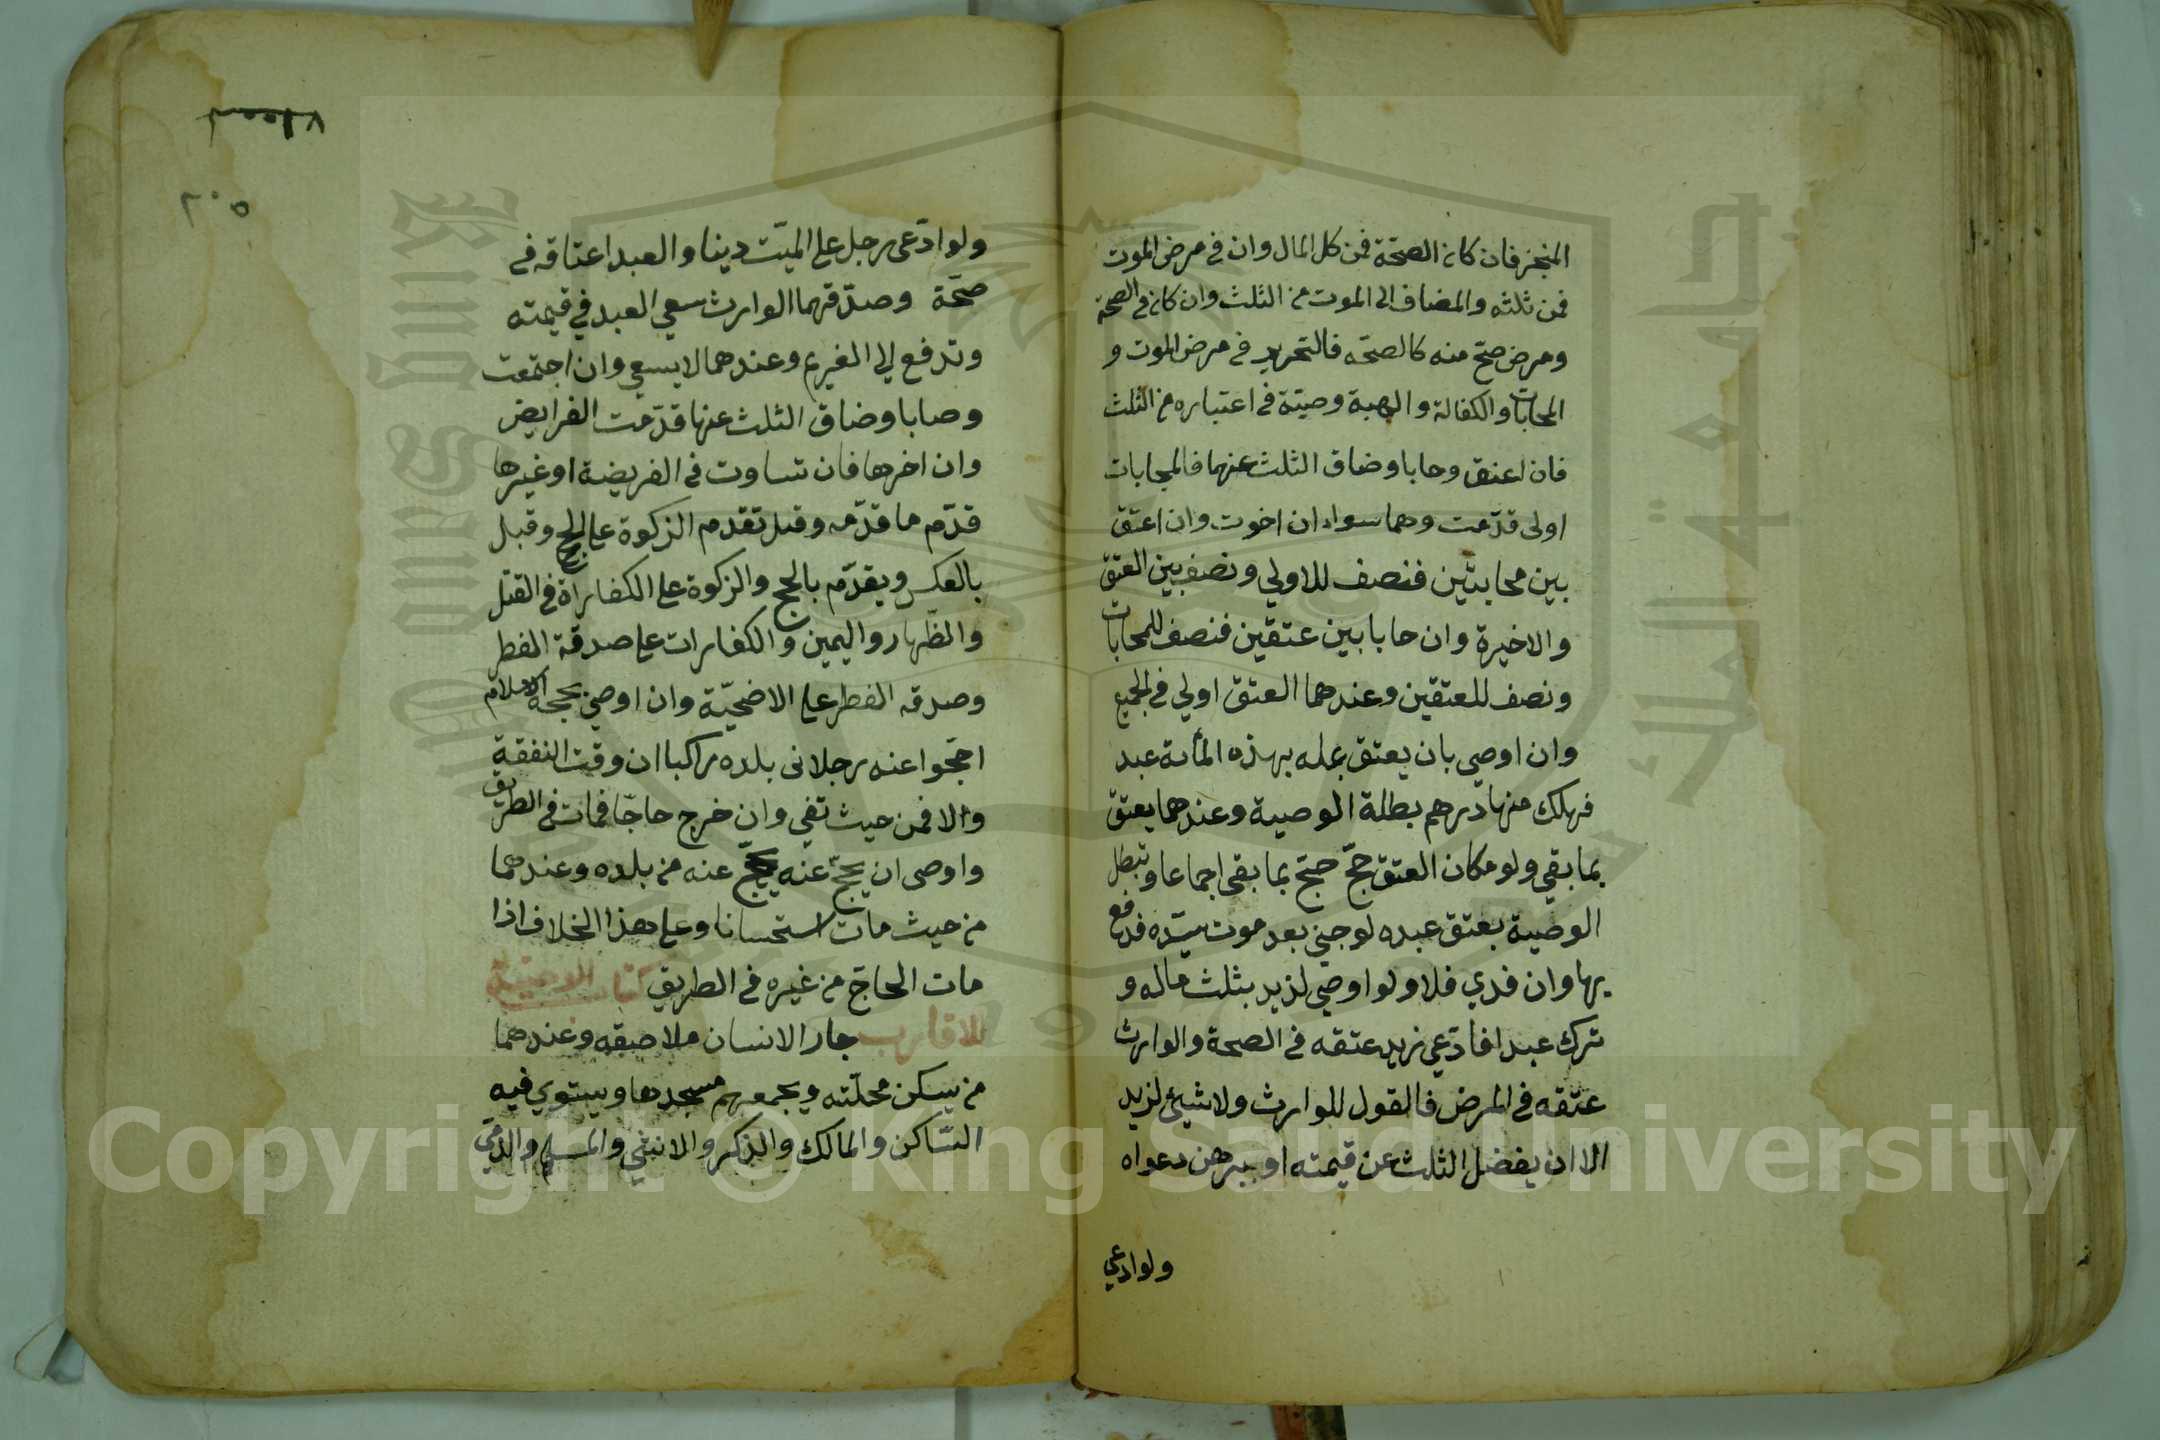 المنجز فان كان الصحّة فمن كل المال وان في مرض الموت
فمن ثلثه والمضاف الى الموت من الثلث وان كان في الصحة
ومرض صحّ منه كالصحّه فالتحرير في مرض الموت و
المحابات والكفالة والهبة وصيّة في اعتباره من الثلث
فان اعتق وحابا وضاق الثلث عنهما فالمحابات
اولى قدّمت وهما سواء ان اخرت وان اعتق
بين محابتين فنصف للاولي ونصف بين العتق
والاخيرة وان حابا بين عتقين فنصف للمحابات
ونصف للعتقين وعندهما العتق اولي في الجميع
وان اوصي بان يعتق بهذه المأىة عبد
فهلك منها درهم بطلة الوصية وعندهما يعتق
بما بقي ولو مكان العتق حجّ حجّ بما بقى اجماعا وتبطل
الوصية بعتق عبده لو جني بعد موت سيّده فدفع
بها وان فدي فلا ولو اوصي لزيد بثلث ماله و
ترك عبدا فادّعي زيد عتقه في الصحة والوارث
عتقه في المرض فالقول للوارث ولا شيئ لزيد
الا ان يفضل الثلث عن قيمته او يبرهن دعواه
ولو ادعي
٥٠٢
ولو ادّعى رجل على الميّت دينا والعبد اعتاقه في
صحّة وصدّقهما الوارث سعي العبد في قيمته
وتدفع الي الغريم وعندهما لا يسعي وان اجتمعت
وصايا وضاق الثلث عنها قدّمت الفرايض
وان اخرها فان تساوت في الفريضة او غيرها
قدّم ما قدّمه وقيل تقدم الزكوة على الحج وقيل
بالعكس ويقدّم بالحج والزكوة على الكفاراة في القتل
والظّهار واليمين والكفارات على صدقة الفطر
وصدقه الفطر على الاضحيّة وان اوصي بحجة الاسلام
احجّوا عنه رجلا في بلده راكبا ان وقت النفقة
والا فمن حيث تفي وان خرج حاجّا فمات في الطريق
واوصى ان يحجّ عنه يحجّ عنه من بلده وعندهما
من حيث مات استحسانا وعلى هذا الخلاف اذا
مات الحاجّ من غيره في الطريق كتاب الوصية
للاقارب جار الانسان ملاصقه وعندهما
من يسكن محلّته ويجمعهم مسجدها ويستوي فيه
السّاكن والمالك والذكر والانثي والمسلم والذمّي
Copyright © King Saud University